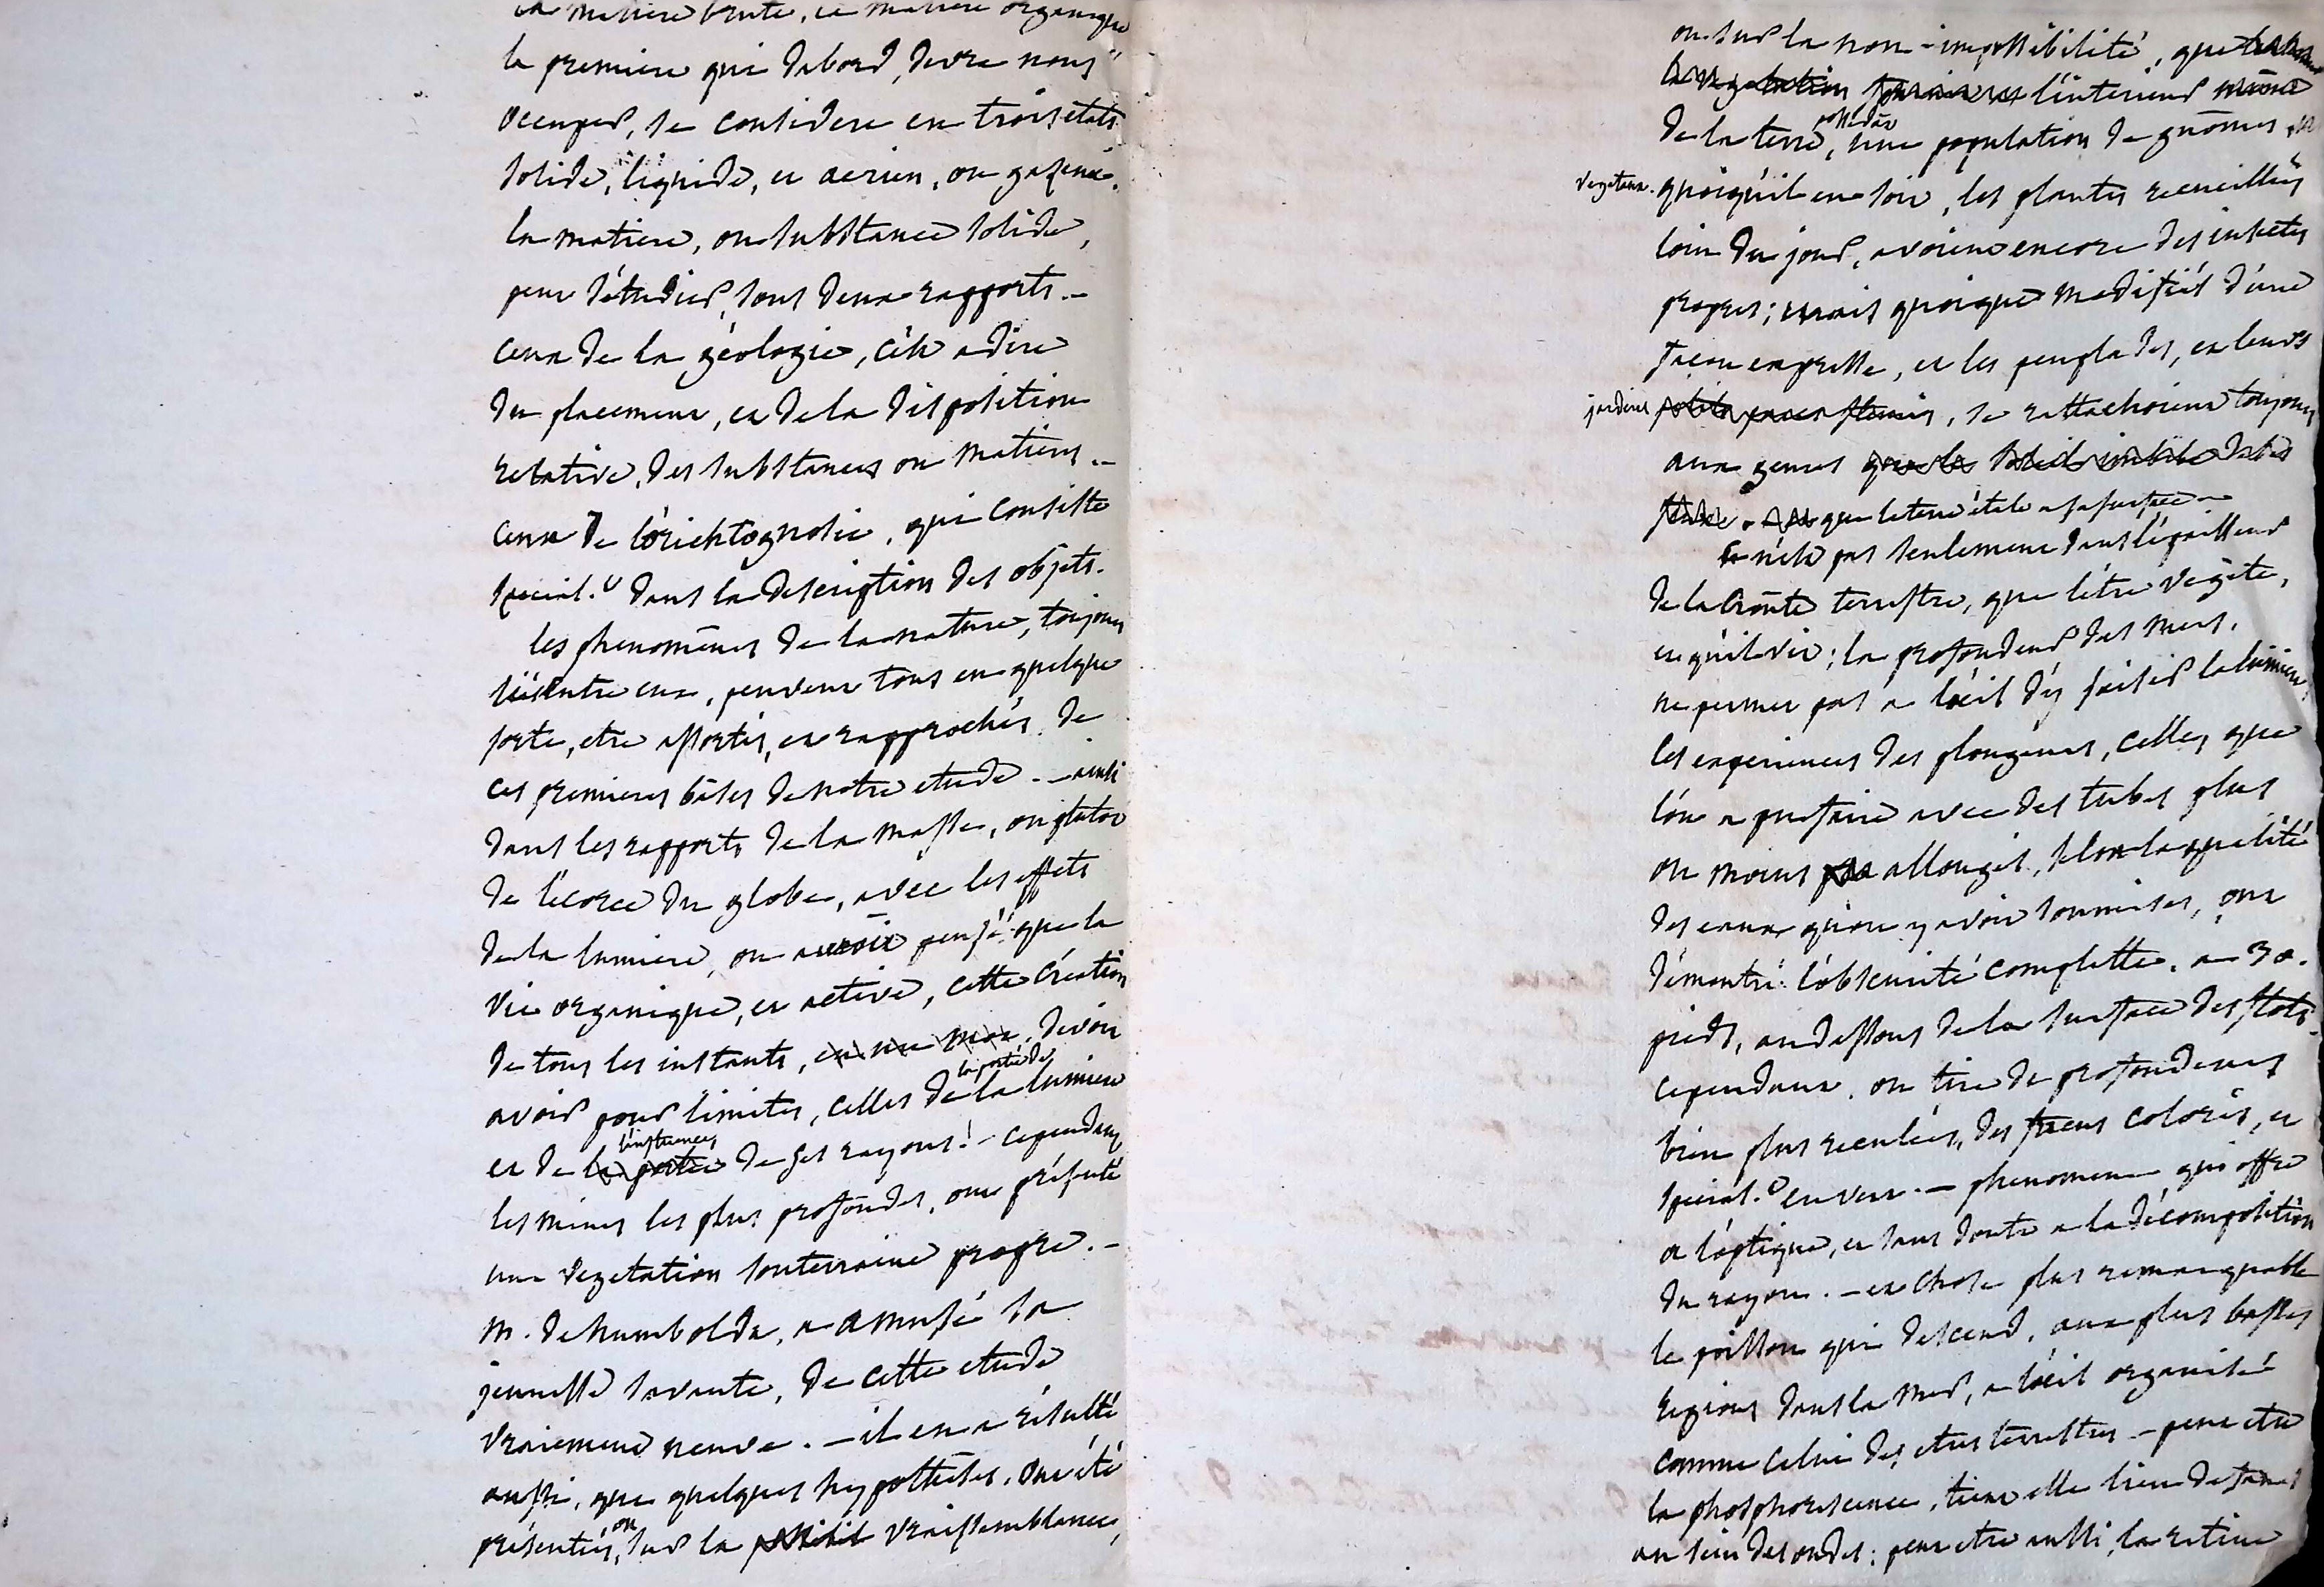 la matiere brute, la matiere organique
la premiere qui dabord, devra nous
occuper, se considere en trois états
solide, liquide, et aerien, ou gazeux.
la matiere, ou substance solide,
peut s'étudier, sous deux rapports. -
ceux de la géologie, c'est a dire
du placement, et de la disposition
relative, des substances ou matieres. -
ceux de l'orichtognosie, qui consiste
special.t dans la description des objets.
les phenomênes de la nature, toujours
liés entre eux, peuvent tous en quelque
sorte, etre assortis, et rapprochés, de
ces premieres bâses de notre etude. - ainsi
dans les rapports de la masse, ou plutot
de l'écorce du globe, avec les effets
de la lumiere, on auroit pensé que la
vie organique, et active, cette création
de tous les instants, devoit
avoir pour limites, celles de la portée de la lumiere
et de l'influence de ses rayons! - cependant
les mines les plus profondes, ont présenté
une vegetation souterraine propre. -
M. de humboldt, a amusé sa
jeunesse savante, de cette etude
vraiement neuve. - il en a résulté
aussi, que quelques hypothêses, ont été
présentées, ou sur la vraissemblance,
ou sur la non-impossibilité, que
l'interieur même
de la terre, possedât une population de gnômes,
vegetaux. quoiqu'il en soit, les plantes recueillies
loin du jour, avoient encore des insectes
propres; mais quoique modifiés d'une
façon expresse, et les peuplades, et leurs
jardins, se rattachoient toujours
aux genres
que la terre étale a sa surface -
ce n'est pas seulement dans l'épaisseur
de la croûte terrestre, que l'être végête,
et qu'il vit; la profondeur des mers,
ne permet pas a l'oeil d'y saisir la lumiere.
les experiences des plongeurs, celles que
l'on a pu faire avec des tubes plus
ou moins allongés, selon la qualité
des eaux qu'on y avoit soumises, ont
démontré l'obscurité complette, a 30.
pieds, au dessous de la surface des flots -
cependant, on tire de profondeurs
bien plus reculées, des fucus colorés, et
special.t en vert. - phenomene qui offre
a l'optique, et sans doute a la décomposition
du rayon. - et chose plus remarquable
le poisson qui descend, aux plus basses
regions dans la mer, a l'oeil organisé
comme celui des etres terrestres - peut etre
la phosphorescence, tient elle lieu de
au sein des ondes; peut etre aussi, la retine